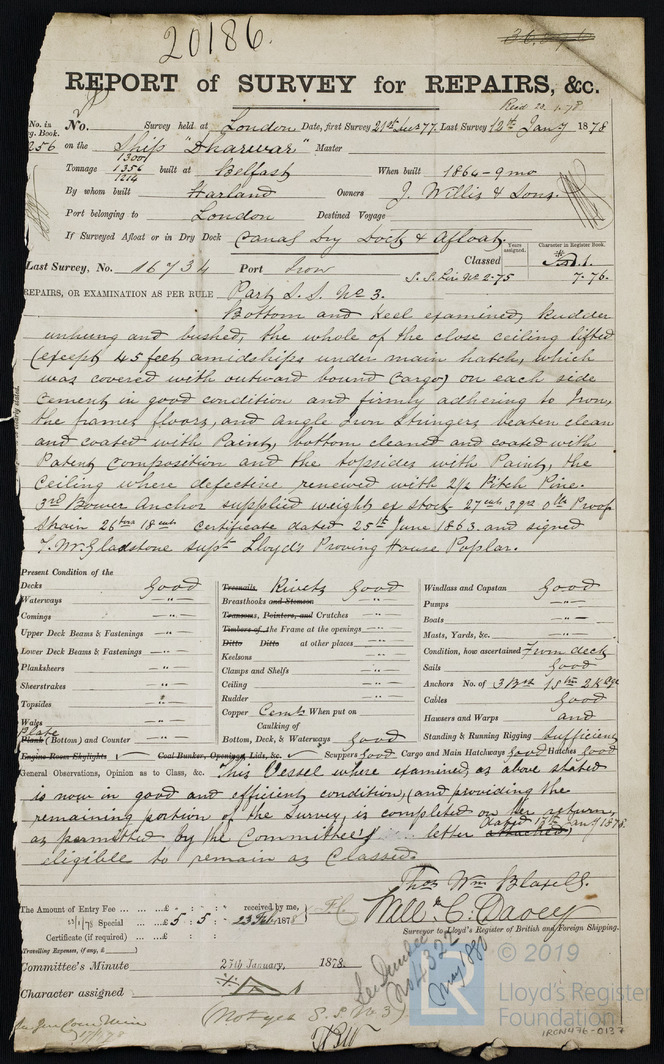 20186.
REPORT of SURVEY for REPAIRS, &c.
No. in
g. Book.
256
No. Survey held at London Date, first Survey 21st Decr 77 Last Survey 12th Jany 1878
on the Ship "Dharwar" Master
Tonnage 1300 1356 1214 built at Belfast When built 1864 - 9 mo
By whom built Harland Owners J. Willis & Sons.
Port belonging to London Destined Voyage
If Surveyed Afloat or in Dry Dock Canal Dry Dock & Afloat.
Years assigned. Character in Register Book.
Last Survey, No. 16734 Port Iron Classed A 1.
S. S. Lin No 2-75 7.76.
REPAIRS, OR EXAMINATION AS PER RULE Part S. S. No 3.
Bottom and Keel examined, Rudder
unhung and bushed, the whole of the close ceiling lifted
(except 45 feet amidships under main hatch, which
was covered with outward bound cargo) on each side
cement in good condition and firmly adhering to Iron,
the frames floors, and angle Iron Stringers beaten clean
and coated with Paint, bottom cleaned and coated with
Patent Composition and the topsides with Paint, the
Ceiling where defective renewed with 2½ Pitch Pine.
3rd Bower Anchor supplied weight ex stock 27 cwts 3 qrs 0 lbs Proof
Strain 26 tons 18 cwts certificate dated 25th June 1863 and signed
T. Wm. Gladstone supt Lloyd's Proving House Poplar.
Present Condition of the
Decks Good
Waterways -"-
Comings -"-
Upper Deck Beams & Fastenings -"-
Lower Deck Beams & Fastenings -"-
Planksheers -"-
Sheerstrakes -"-
Topsides -"-
Wales -"-
Plate
Plank (Bottom) and Counter -"-
Treenails Rivets Good
Breasthooks and Stemson -"-
Transoms, Pointers, and Crutches -"-
Timbers of the Frame at the openings -"-
Ditto Ditto at other places -"-
Keelsons -"-
Clamps and Shelfs -"-
Ceiling -"-
Rudder -"-
Copper Cemt When put on
Caulking of
Bottom, Deck, & Waterways Good
Windlass and Capstan Good
Pumps -"-
Boats -"-
Masts, Yards, &c. -"-
Condition, how ascertained From deck
Sails Good
Anchors No. of 3 Br 1 St 2 Kge
Cables Good
Hawsers and Warps and
Standing & Running Rigging Sufficient
Engine Room Skylights Coal Bunker, Openings, Lids, &c. Scuppers Good Cargo and Main Hatchways Good Hatches Good
General Observations, Opinion as to Class, &c. This Vessel where examined, as above stated
is now in good and efficient condition, (and providing the
remaining portion of the Survey, is completed on her return,
as permitted by the Committee's letter attached) dated 17th Jany 1878.
eligible to remain as Classed.
Thos Wm Blaxell.
Will. C. Davey
Surveyor to Lloyd's Register of British and Foreign Shipping.
The Amount of Entry Fee ... ... £ : : received by me,
Special ... ... £ 5 : 5 : - 23 Feb 1878
Certificate (if required) ... £ : :
Travelling Expenses, if any, £
Committee's Minute 25th January, 1878.
Character assigned
(Not yet S. S. No 3)
See Dundee
No 4322
May 1880
© 2019
Lloyd's Register
Foundation
IRON476-0137